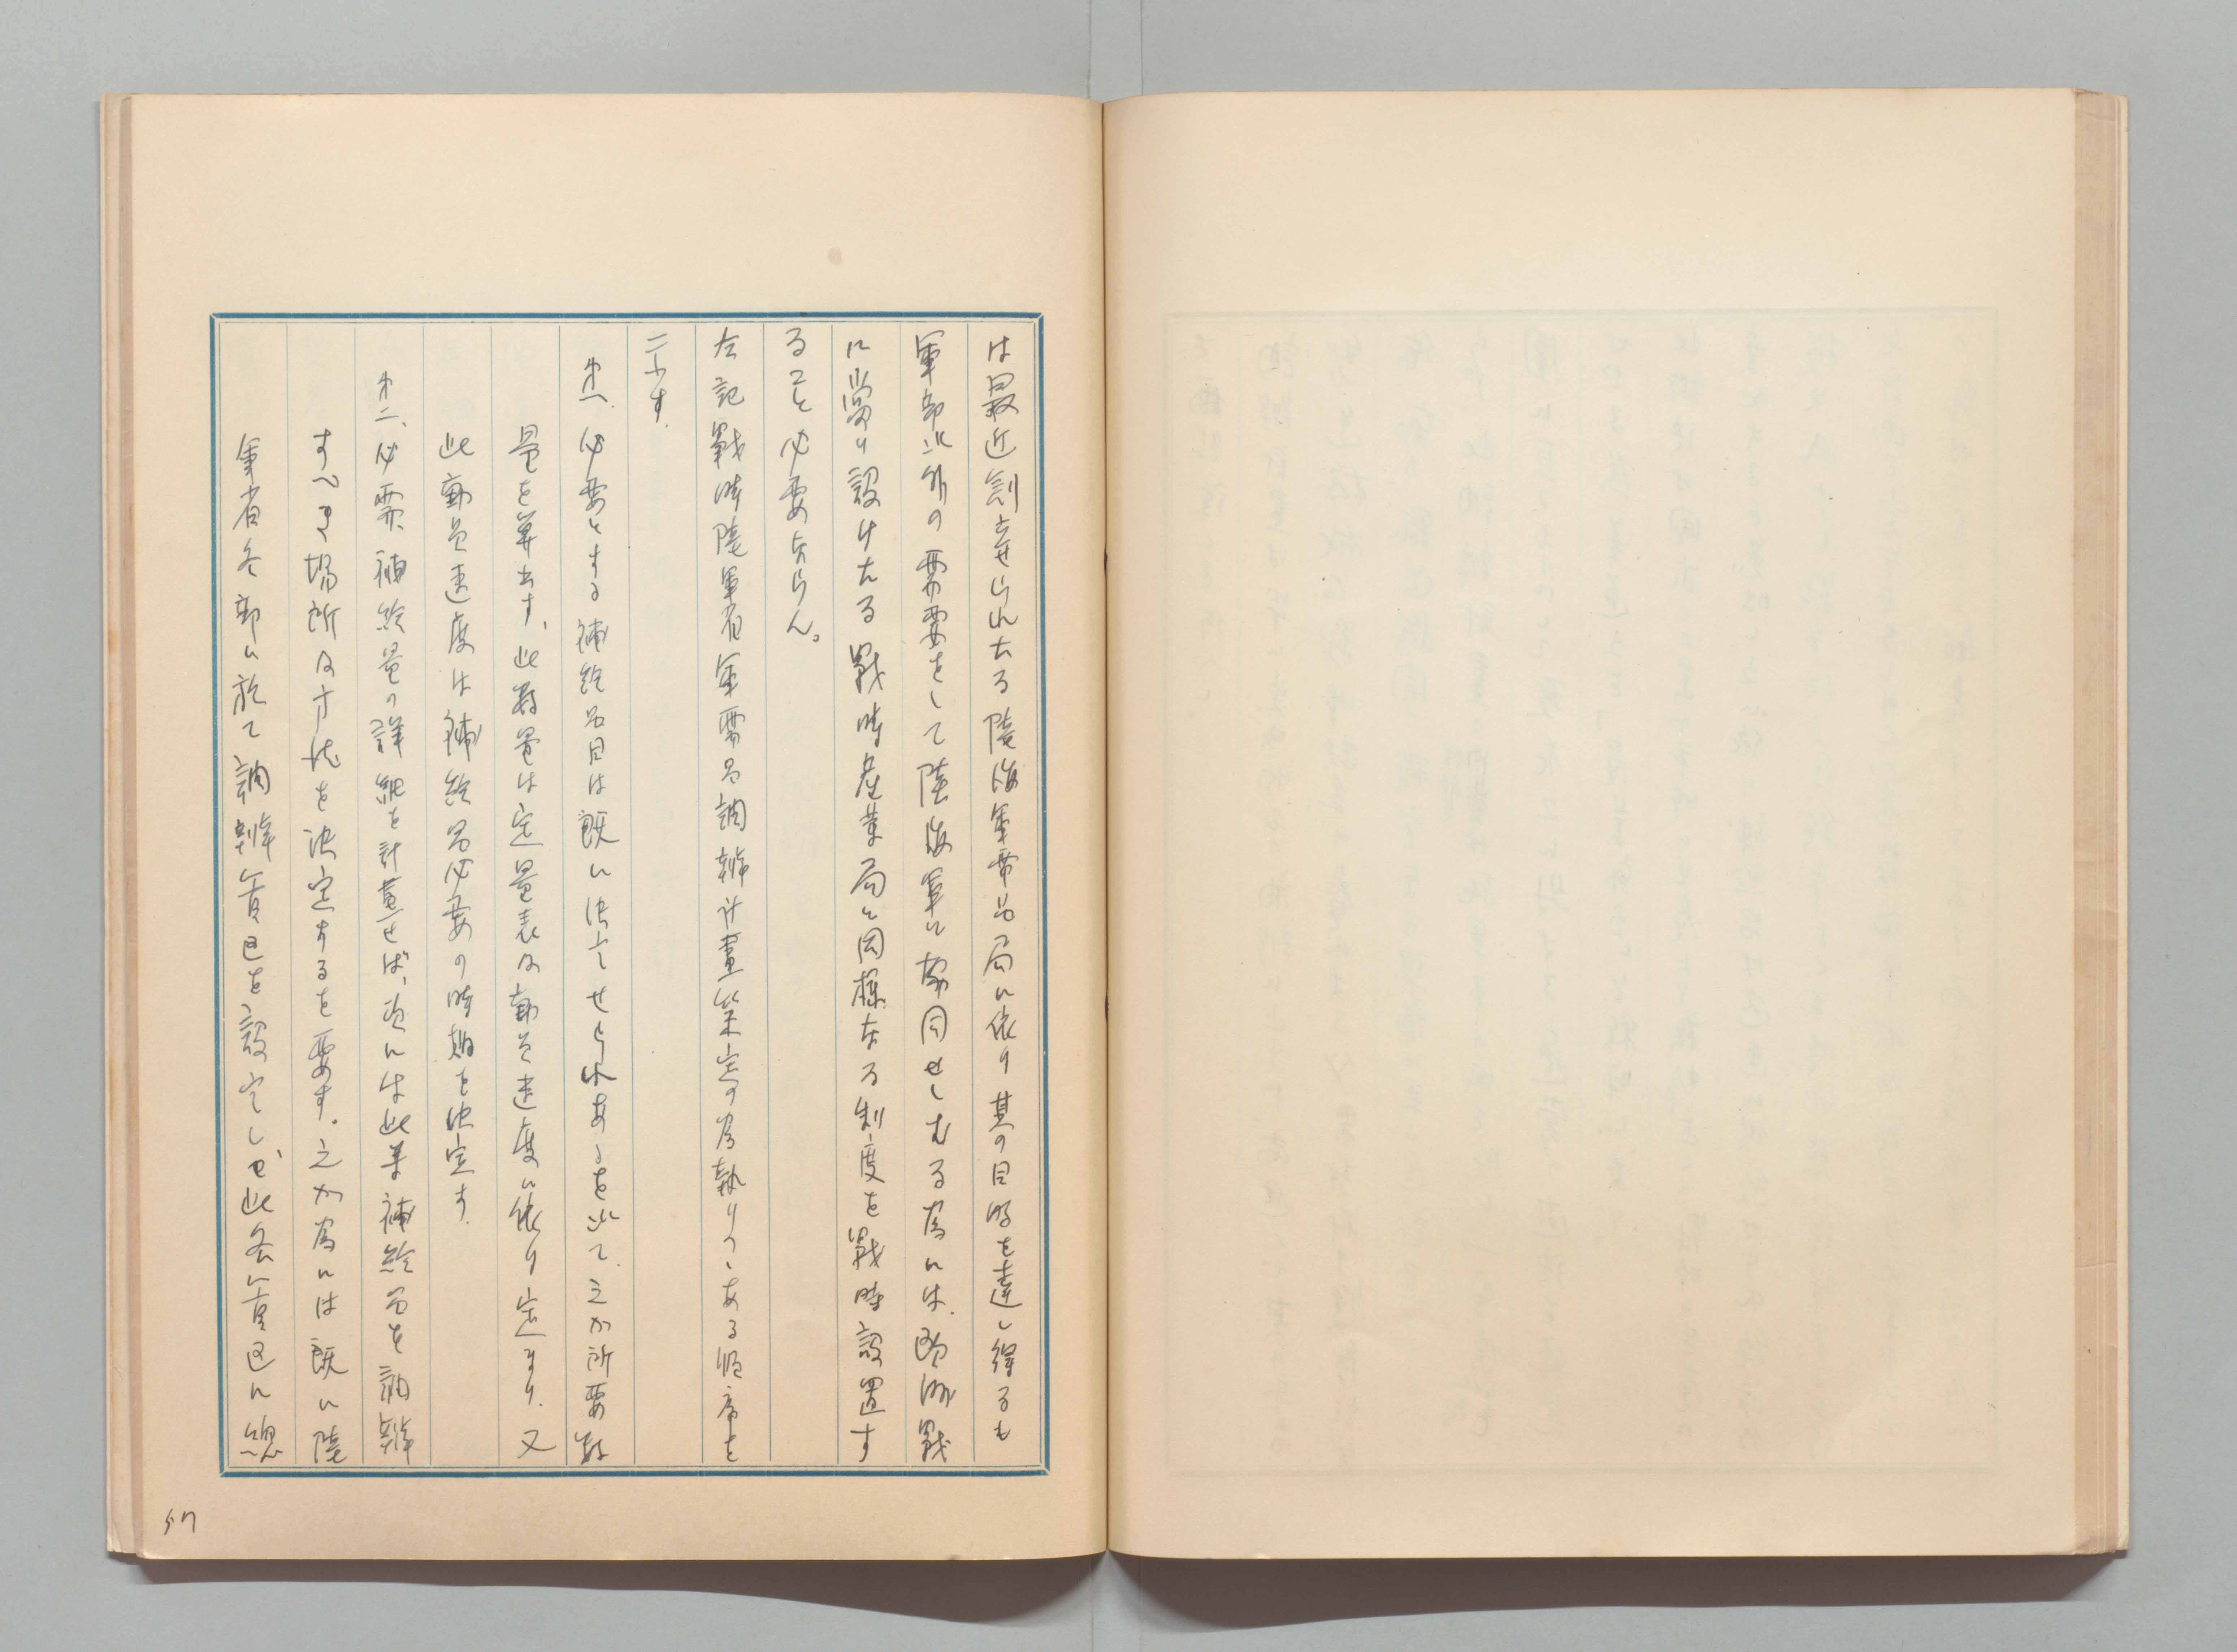 は最近創立せられたる陸海軍需品局に依り其の目的を達し得るも
軍部以外の需要をして陸海軍に協同せしむる為には、欧洲戦
に當り設けたる戰時産業局と同様なる制度を戰時設置す
ること必要ならん。
左記戰時陸軍省軍需品調辨計畫策定の為執りつゝある順序を
示す。
第一、必要とする補給品目は既に決定せられあるを以て之か所要数
量を算出す、此数量は定量表及動員速度に依り定まり、又
此動員速度は補給品必要の時期を決定す。
第二、必需補給量の詳細を計画せば、次には此等補給品を調辨
すべき場所及方法を決定するを要す。之か為には既に陸
軍省各部に於て調辨管区を設定しで此各管区に總
57